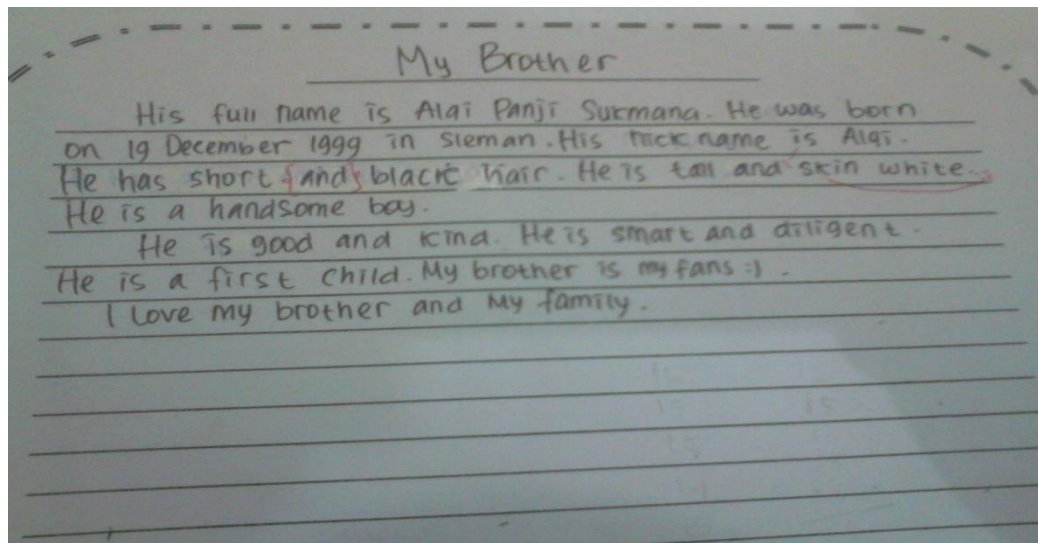 My Brother
His full name is Alqi Panji Sukmana. He was born
on 19 December 1999 in Sleman. His nick name is Alqi.
He has short {and} black hair. He is tall and skin white.
He is a handsome boy.
He is good and kind. He is smart and diligent.
He is a first child. My brother is my fans :) .
I Love my brother and My family.